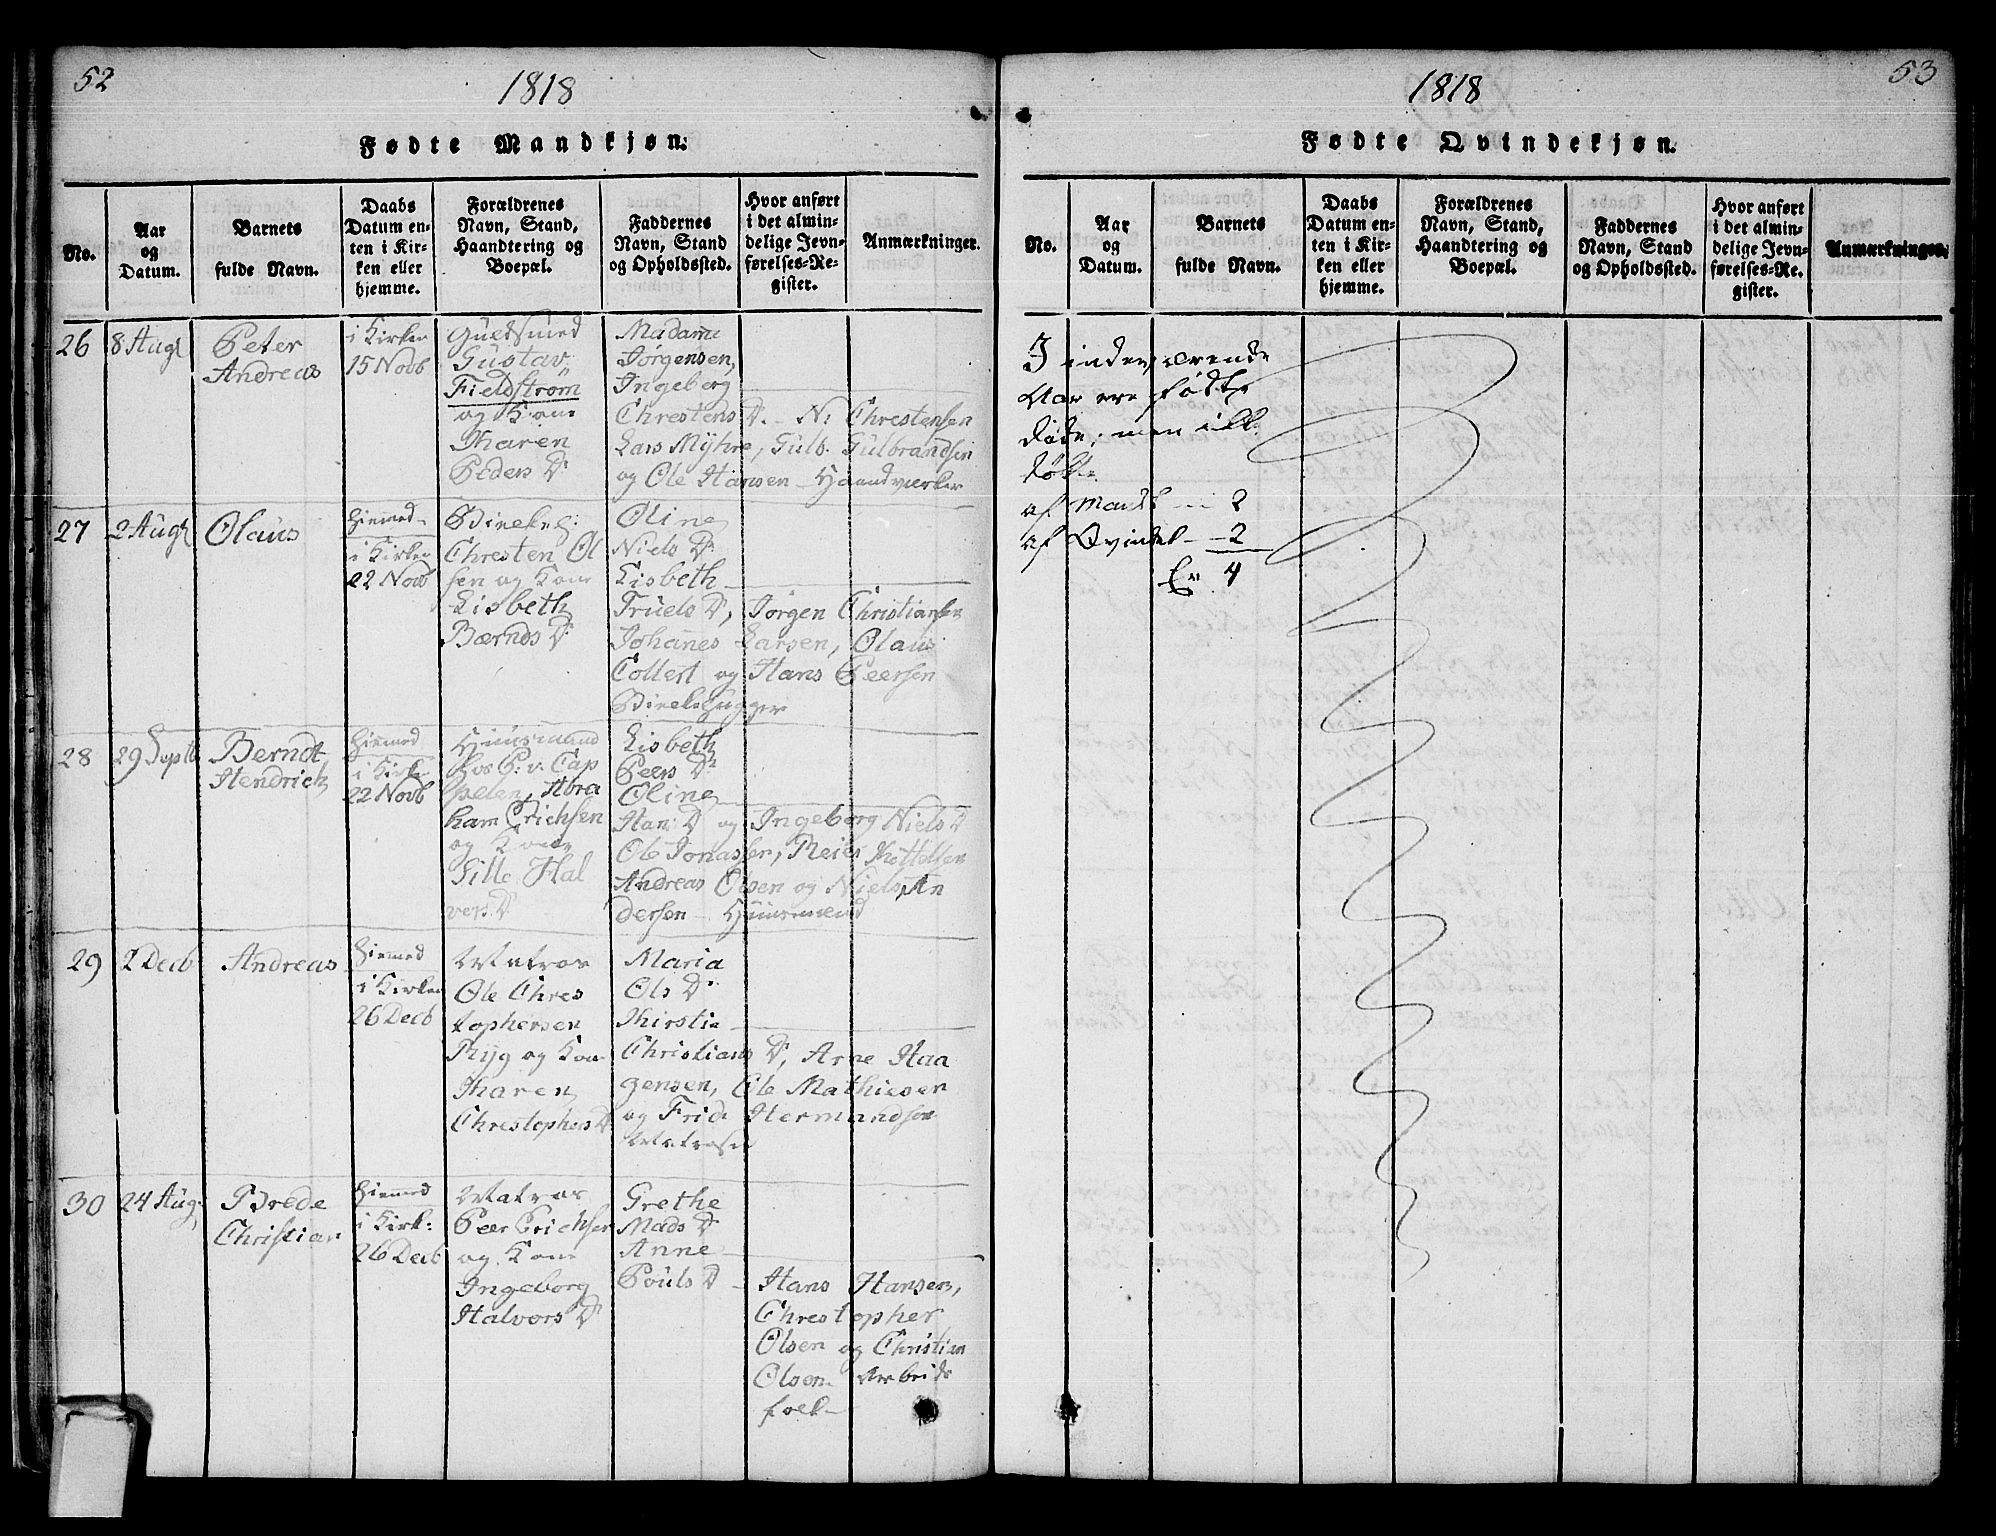 52
1818
Fødte Mandkjøn.
No.
Aar
og
Datum.
Barnets
fulde Navn.
Daabs
Datum en-
ten i Kir-
ken eller
hjemme.
Forældrenes
Navn, Stand,
Haandtering og
Boepæl.
Faddernes
Navn, Stand
og Opholdssted.
Hvor anført
i det almin-
delige Jevn-
førelses-Re-
gister.
Anmærkninger.
26
8 Augl
Peter
Andreas
i Kirken
15 Novb
Guldsmed
Gustav
Fieldstrøm
og Kone
Maren
Peders D:
Madame
Jørgensen,
Ingeberg
Chrestens D: - N: Chrestensen
Lars Myhre, Gulb. Gulbrandsen
og Ole Hansen - Haandværker
27
2 Augl
Olaus
Hiemed
i Kirken
22 Novb
Chresten Ol
sen og Kone
Lisbeth
Bærnds D:
Oline
Niels D:
Lisbeth
Truels D:, Jørgen Christiansen
Johanes Larsen, Olaus
Collert og Hans Peersen
28
29 Septb
Berndt
Hendrich
Hiemed
i Kirke
22 Novb
Huusmand
hos P: v: Cap
pelen, Abra
ham Erichsen
og Kone
Sille Hal
vers D:
Lisbeth
Peers D:
Oline
Hans D: og Ingeborg Niels D
Ole Jonassen, Reier Kittelsen
Andreas Olsen og Niels An
dersen - Huusmænd
29
2 Decb
Andreas
Hiemed
i Kirken
26 Decb
Matros
Ole Chres
tophersen
Ryg og Kone
Maren
Christophers D
Maria
Ols D:
Kirstie
Christians D:, Arne Haa
gensen, Ole Mathiesen
og Fride Hermandsen
Matroser
30
24 Aug:
Brede
Christian
Hiemed
i Kirk:
26 Decb
Matros
Peer Erichsen
og Kone
Ingeborg
Halvors D:
Grethe
Mads D:
Anne
Pouls D - Hans Hansen,
Chrestopher
Olsen og Christian
Olsen. Arbeids
folk
53
1818
Fødte Qvindekjøn.
No.
Aar
og
Datum.
Barnets
fulde Navn.
Daabs
Datum en-
ten i Kir-
ken eller
hjemme.
Forældrenes
Navn, Stand,
Haandtering og
Boepæl.
Faddernes
Navn, Stand
og Opholdssted.
Hvor anført
i det almin-
delige Jevn-
førelses-Re-
gister.
Anmærkninger.
I indeværende
Aar ere fødte
døde, men ikke
døbte
af Mandk - 2
af Qvindek - 2
Er 4